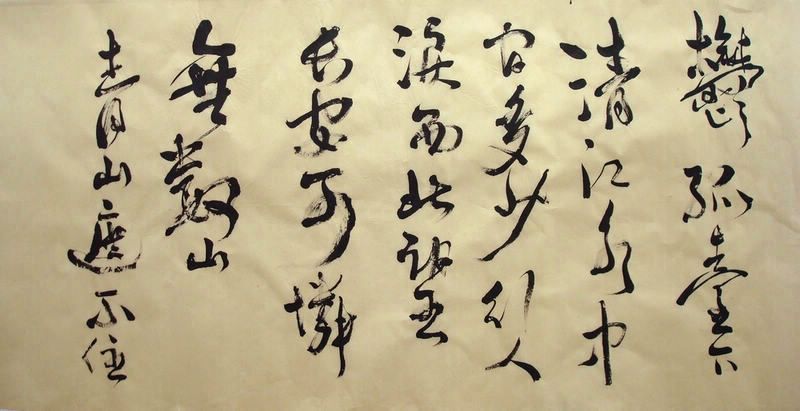 鬱孤臺下
清江水中
間多少行人
淚西北望
長安可憐
無數山
青山遮不住